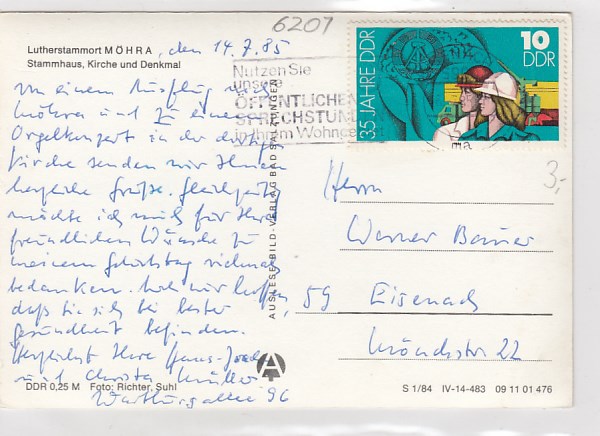 6201
Lutherstammort MÖHRA, den 14.7.85
Stammhaus, Kirche und Denkmal
Von einem Ausflug nach
Möhra und zu einem
Orgelkonzert in der dortigen
Kirche senden wir Ihnen
herzliche Grüße. Gleichzeitig
möchte ich mich für Ihre
freundlichen Wünsche zu
meinem Geburtstag vielmals
bedanken. Wir hoffen,
daß Sie sich bei bester
Gesundheit befinden.
Herzlichst Ihre Hans-Joach
und Christa Müller
Wartburgallee 96
DDR 0,25 M Foto: Richter, Suhl
AUSLESE-BILD-VERLAG BAD SALZUNGEN
Nutzen Sie
unsere
ÖFFENTLICHEN
SPRECHSTUNDEN
in Ihrem Wohngebiet
35 JAHRE DDR
10
DDR
3,-
Herrn
Werner Bauer
59 Eisenach
Mönchstr 22
S 1/84 IV-14-483 09 11 01 476